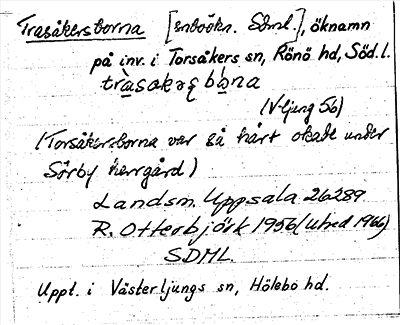 Trasåkersborna [inbökn. Sdml.], öknamn
på inv. i Torsåkers sn, Rönö hd, Söd. l.
(V-ljung 56)
(Torsåkersborna var så hårt okade under
Sörby herrgård)
Landsm. Uppsala 26289.
R. Otterbjörk 1956 (utred 1966)
SDML.
Uppt. i Västerljungs sn, Hölebo hd.